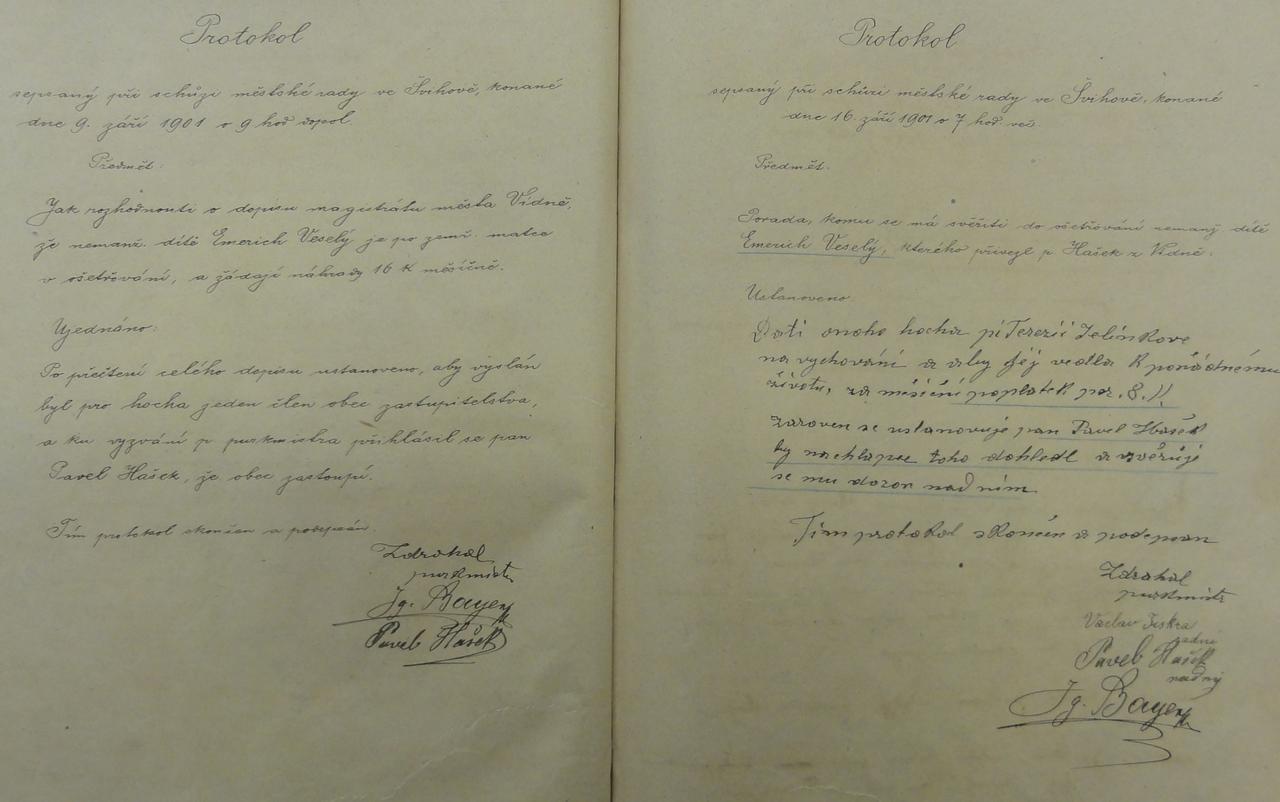 Protokol
sepsaný při schůzi městské rady ve Švihově, konané
dne 9. září 1901 o 9 hod dopol.
Předmět:
Jak rozhodnouti o dopisu magistrátu města Vídně,
že nemanž. dítě Emerich Veselý je po zemř. matce
v ošetřování, a žádají náhrady 16 K měsíčně.
Ujednáno:
Po přečtení celého dopisu ustanoveno, aby vyslán
byl pro hocha jeden člen obec zastupitelstva,
a ku vyzvání p purkmistra přihlásil se pan
Pavel Hašek, že obec zastoupí.
Tím protokol skončen a podepsán.
Zdrahal
purkmistr
Ig. Bayer
Pavel Hašek
Protokol
sepsaný při schůzi městské rady ve Švihově, konané
dne 16. září 1901 o 7 hod. več.
Předmět.
Porada, komu se má svěřiti do ošetřování nemanž dítě
Emerich Veselý, kterého přivezl p Hašek z Vídně.
Ustanoveno
Dati onoho hocha pí Terezii Jelínkove
na vychování a aby jej vedla k pořádnému
životu, za měsíční poplatek par. 8.
zaroven se ustanovuje pan Pavel Hašek
by na chlapce toho dohledl a svěřuje
se mu dozor nad ním.
Tím protokol skončen a podepsan
Zdrahal
purkmistr
Václav Jiskra
radní
Pavel Hašek
radný
Ig. Bayer